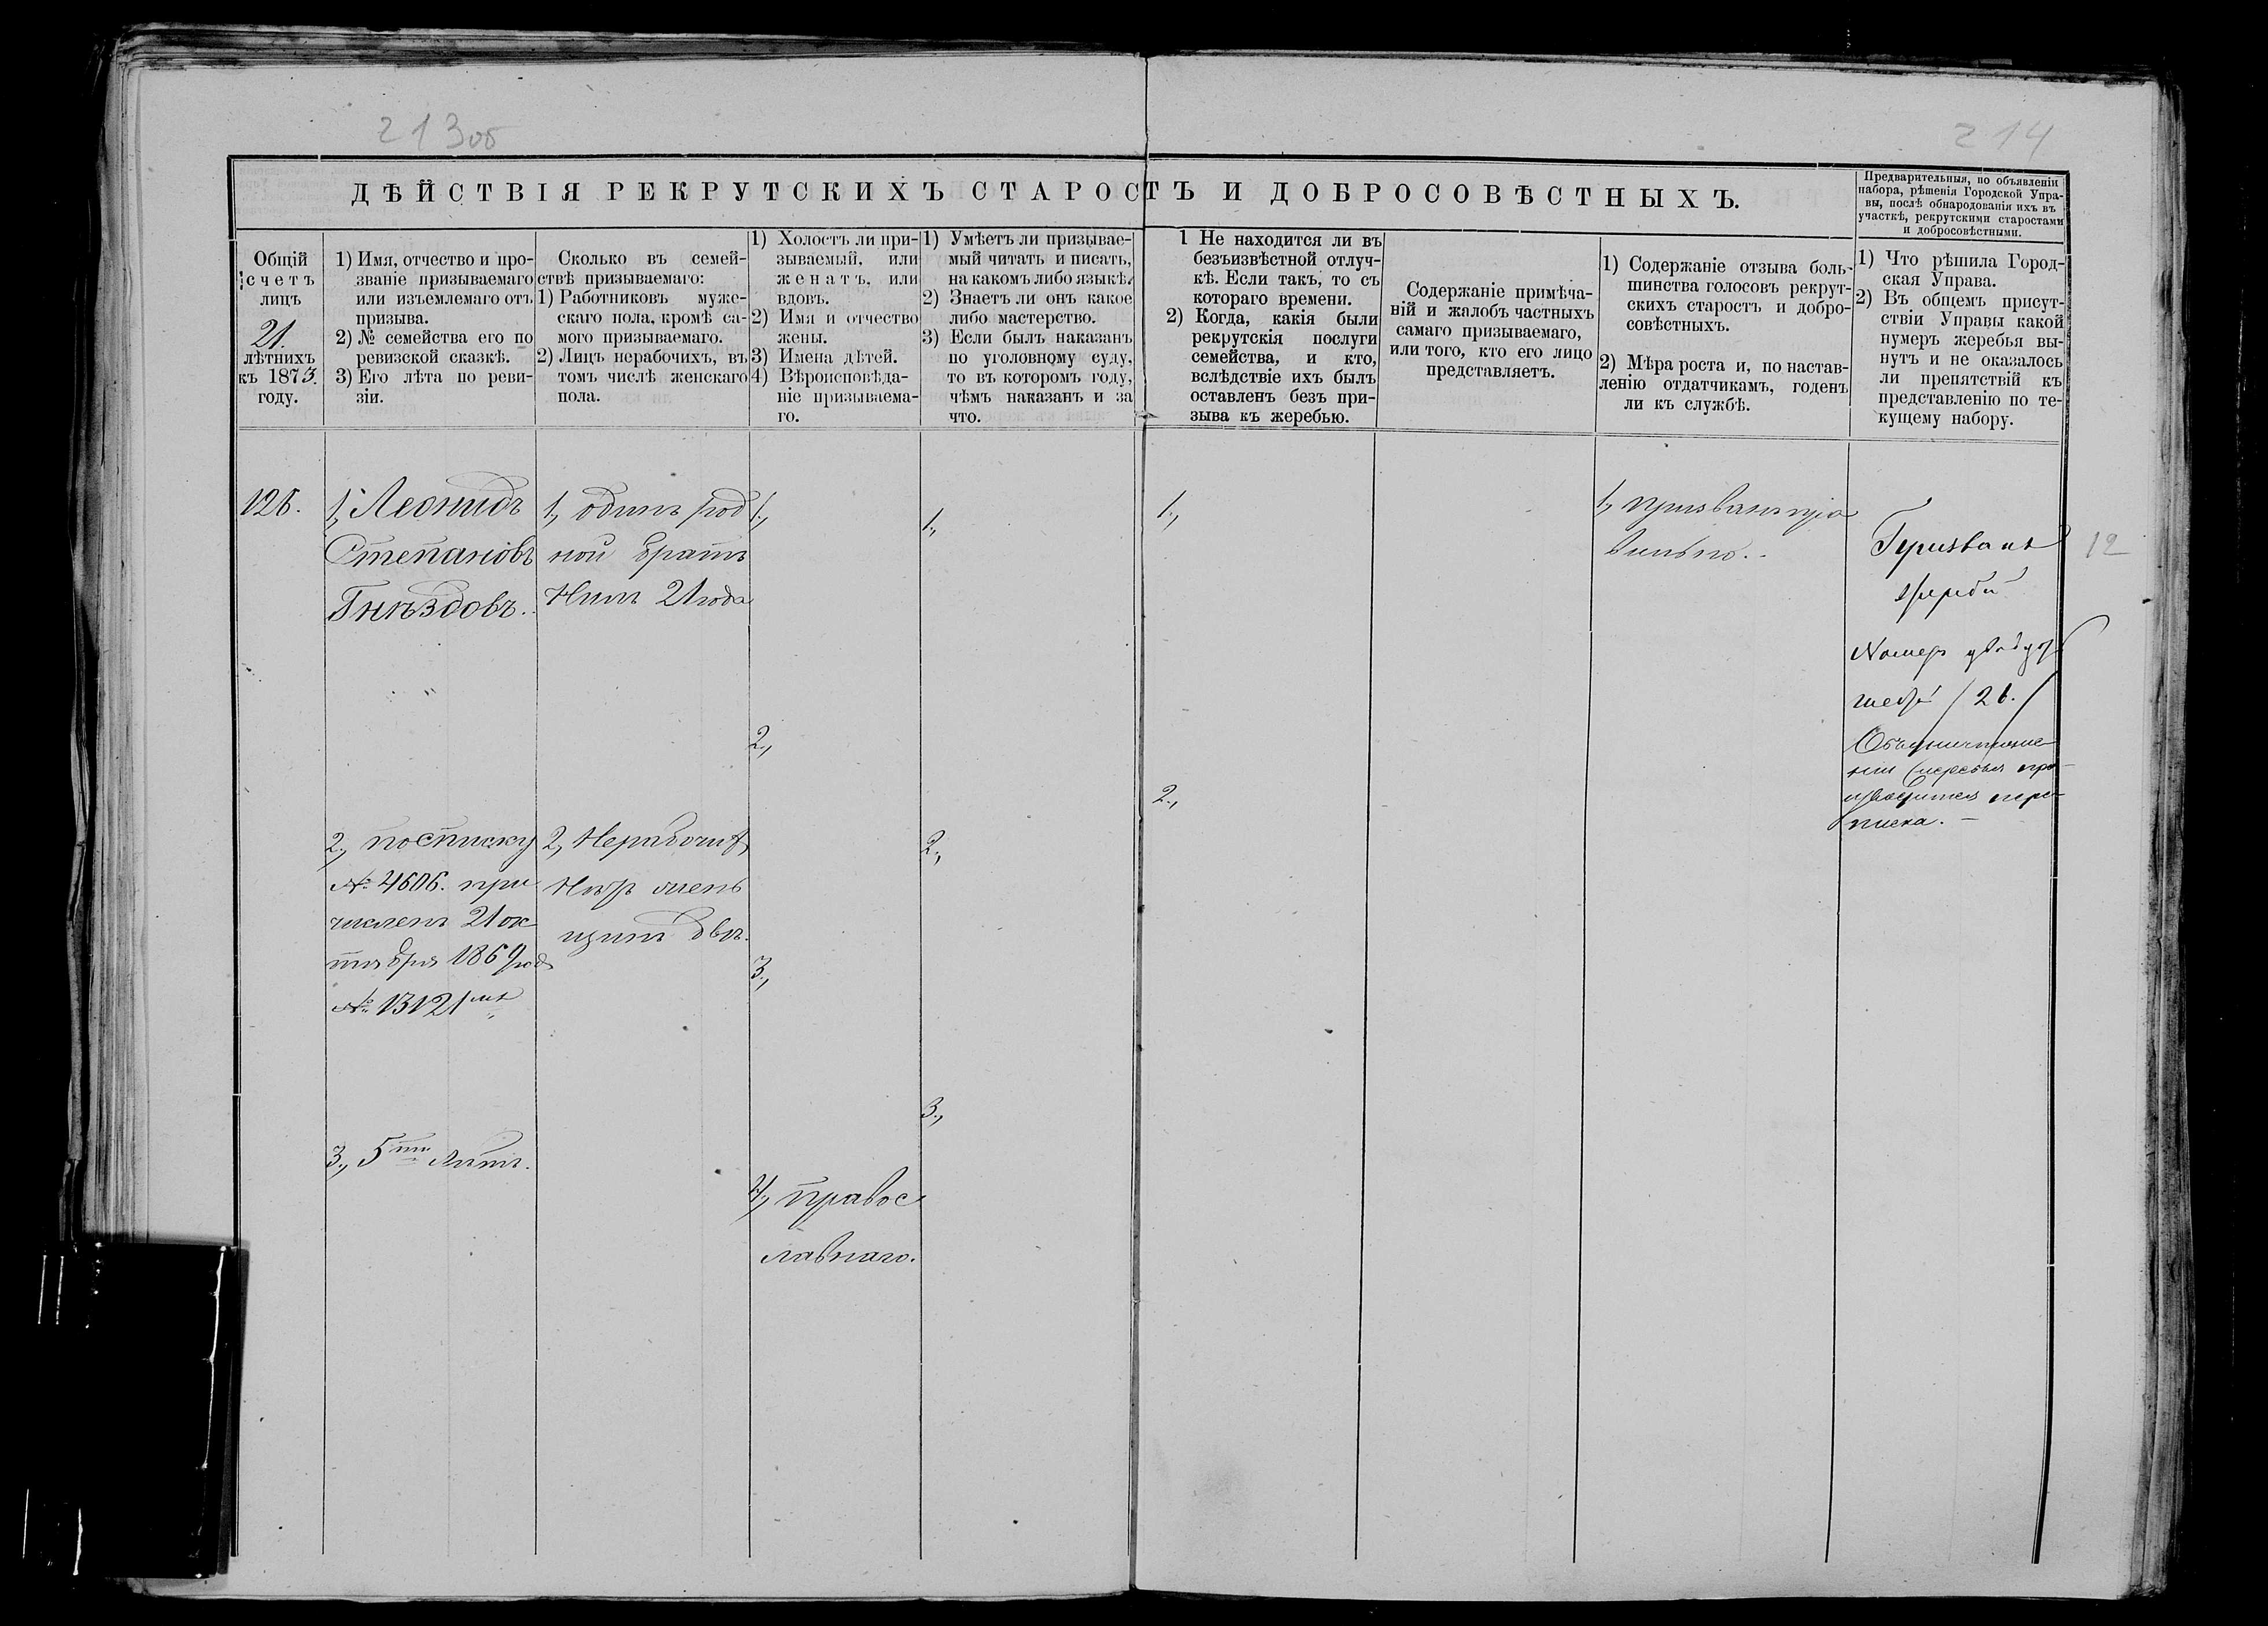 213об
214
ДѢЙСТВІЯ РЕКРУТСКИХЪ СТАРОСТЪ И ДОБРОСОВѢСТНЫХЪ.
Предварительныя, по объявленіи
набора, рѣшенія Городской Упра-
вы, послѣ обнародованія ихъ въ
участкѣ, рекрутскими старостами
и добросовѣстными.
Общій
счетъ
лицъ
21.
лѣтнихъ
къ 1873.
году.
1) Имя, отчество и про-
званіе призываемаго
или изъемлемаго отъ
призыва.
2) № семейства его по
ревизской сказкѣ.
3) Его лѣта по реви-
зіи.
Сколько въ семей-
ствѣ призываемаго:
1) Работниковъ муже-
скаго пола, кромѣ са-
мого призываемаго.
2) Лицъ нерабочихъ, въ
томъ числѣ женскаго
пола.
1) Холостъ ли при-
зываемый, или
женатъ, или
вдовъ.
2) Имя и отчество
жены.
3) Имена дѣтей.
4) Вѣроисповѣда-
ніе призываема-
го.
1) Умѣетъ ли призывае-
мый читать и писать,
на какомъ либо языкѣ.
2) Знаетъ ли онъ какое
либо мастерство.
3) Если былъ наказанъ
по уголовному суду,
то въ которомъ году,
чѣмъ наказанъ и за
что.
1 Не находится ли въ
безъизвѣстной отлуч-
кѣ. Если такъ, то съ
котораго времени.
2) Когда, какія были
рекрутскія послуги
семейства, и кто,
вслѣдствіе ихъ былъ
оставленъ безъ при-
зыва къ жеребью.
Содержаніе примѣча-
ній и жалобъ частныхъ
самаго призываемаго,
или того, кто его лицо
представляетъ.
1) Содержаніе отзыва боль-
шинства голосовъ рекрут-
скихъ старостъ и добро-
совѣстныхъ.
2) Мѣра роста и, по настав-
ленію отдатчикамъ, годенъ
ли къ службѣ.
1) Что рѣшила Город-
ская Управа.
2) Въ общемъ присут-
ствіи Управы какой
нумеръ жеребья вы-
нутъ и не оказалось
ли препятствій къ
представленію по те-
кущему набору.
126.
1, Леонидъ
Степановъ
Гнѣздовъ.
2, по списку
№ 4606. при
численъ 21 ок
тября 1869 года
№ 13121мъ
3, 5ти Лѣтъ.
1, одинъ род
ной братъ
Нилъ 21 года
2, Нерабочихъ
Нѣтъ женъ
щинъ двѣ.
1,
2,
3,
4, правос
лавнаго.
1,
2,
3,
1,
2,
1, призванъ пра
вильно.
Призванъ
12
Номеръ
/26./